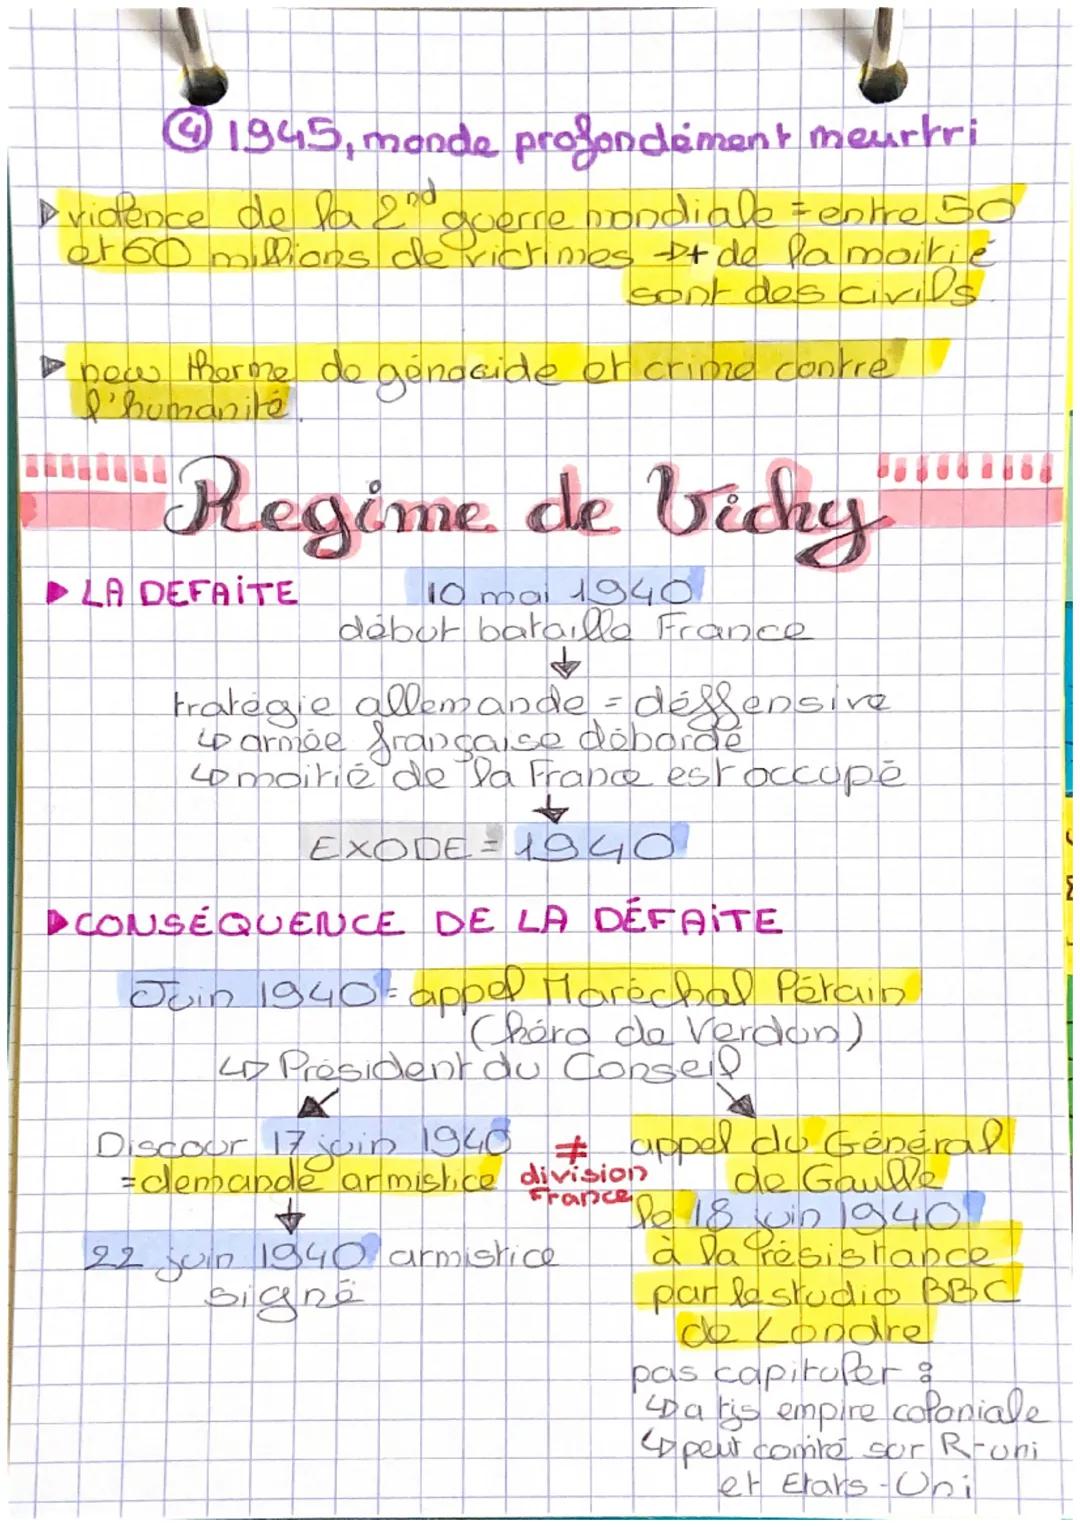 ④ 1945, monde profondément meurtri
▷ violence de la 2nd guerre mondiale = entre 50
et 60 millions de victimes → + de la moitié
sont des civils
▷ new therme de génocide et crime contre
l'humanité.
Regime de Vichy
▶ LA DEFAITE 10 mai 1940
début bataille France
↓
tratégie allemande = déffensive
↳ armée française débordé
↳ moitié de la France est occupé
↓
EXODE = 1940
▶ CONSÉQUENCE DE LA DÉFAITE
Juin 1940 = appel Maréchal Pétain
(héro de Verdun)
↳ Président du Conseil
Discour 17 juin 1940
= demande armistice
↓
22 juin 1940 armistice
signé
≠
division
France
appel du Général
de Gaulle
le 18 juin 1940
à la résistance
par le studio BBC
de Londre
pas capituler :
↳ a tjs empire coloniale
↳ peut comté sur R-uni
et Etats-Uni